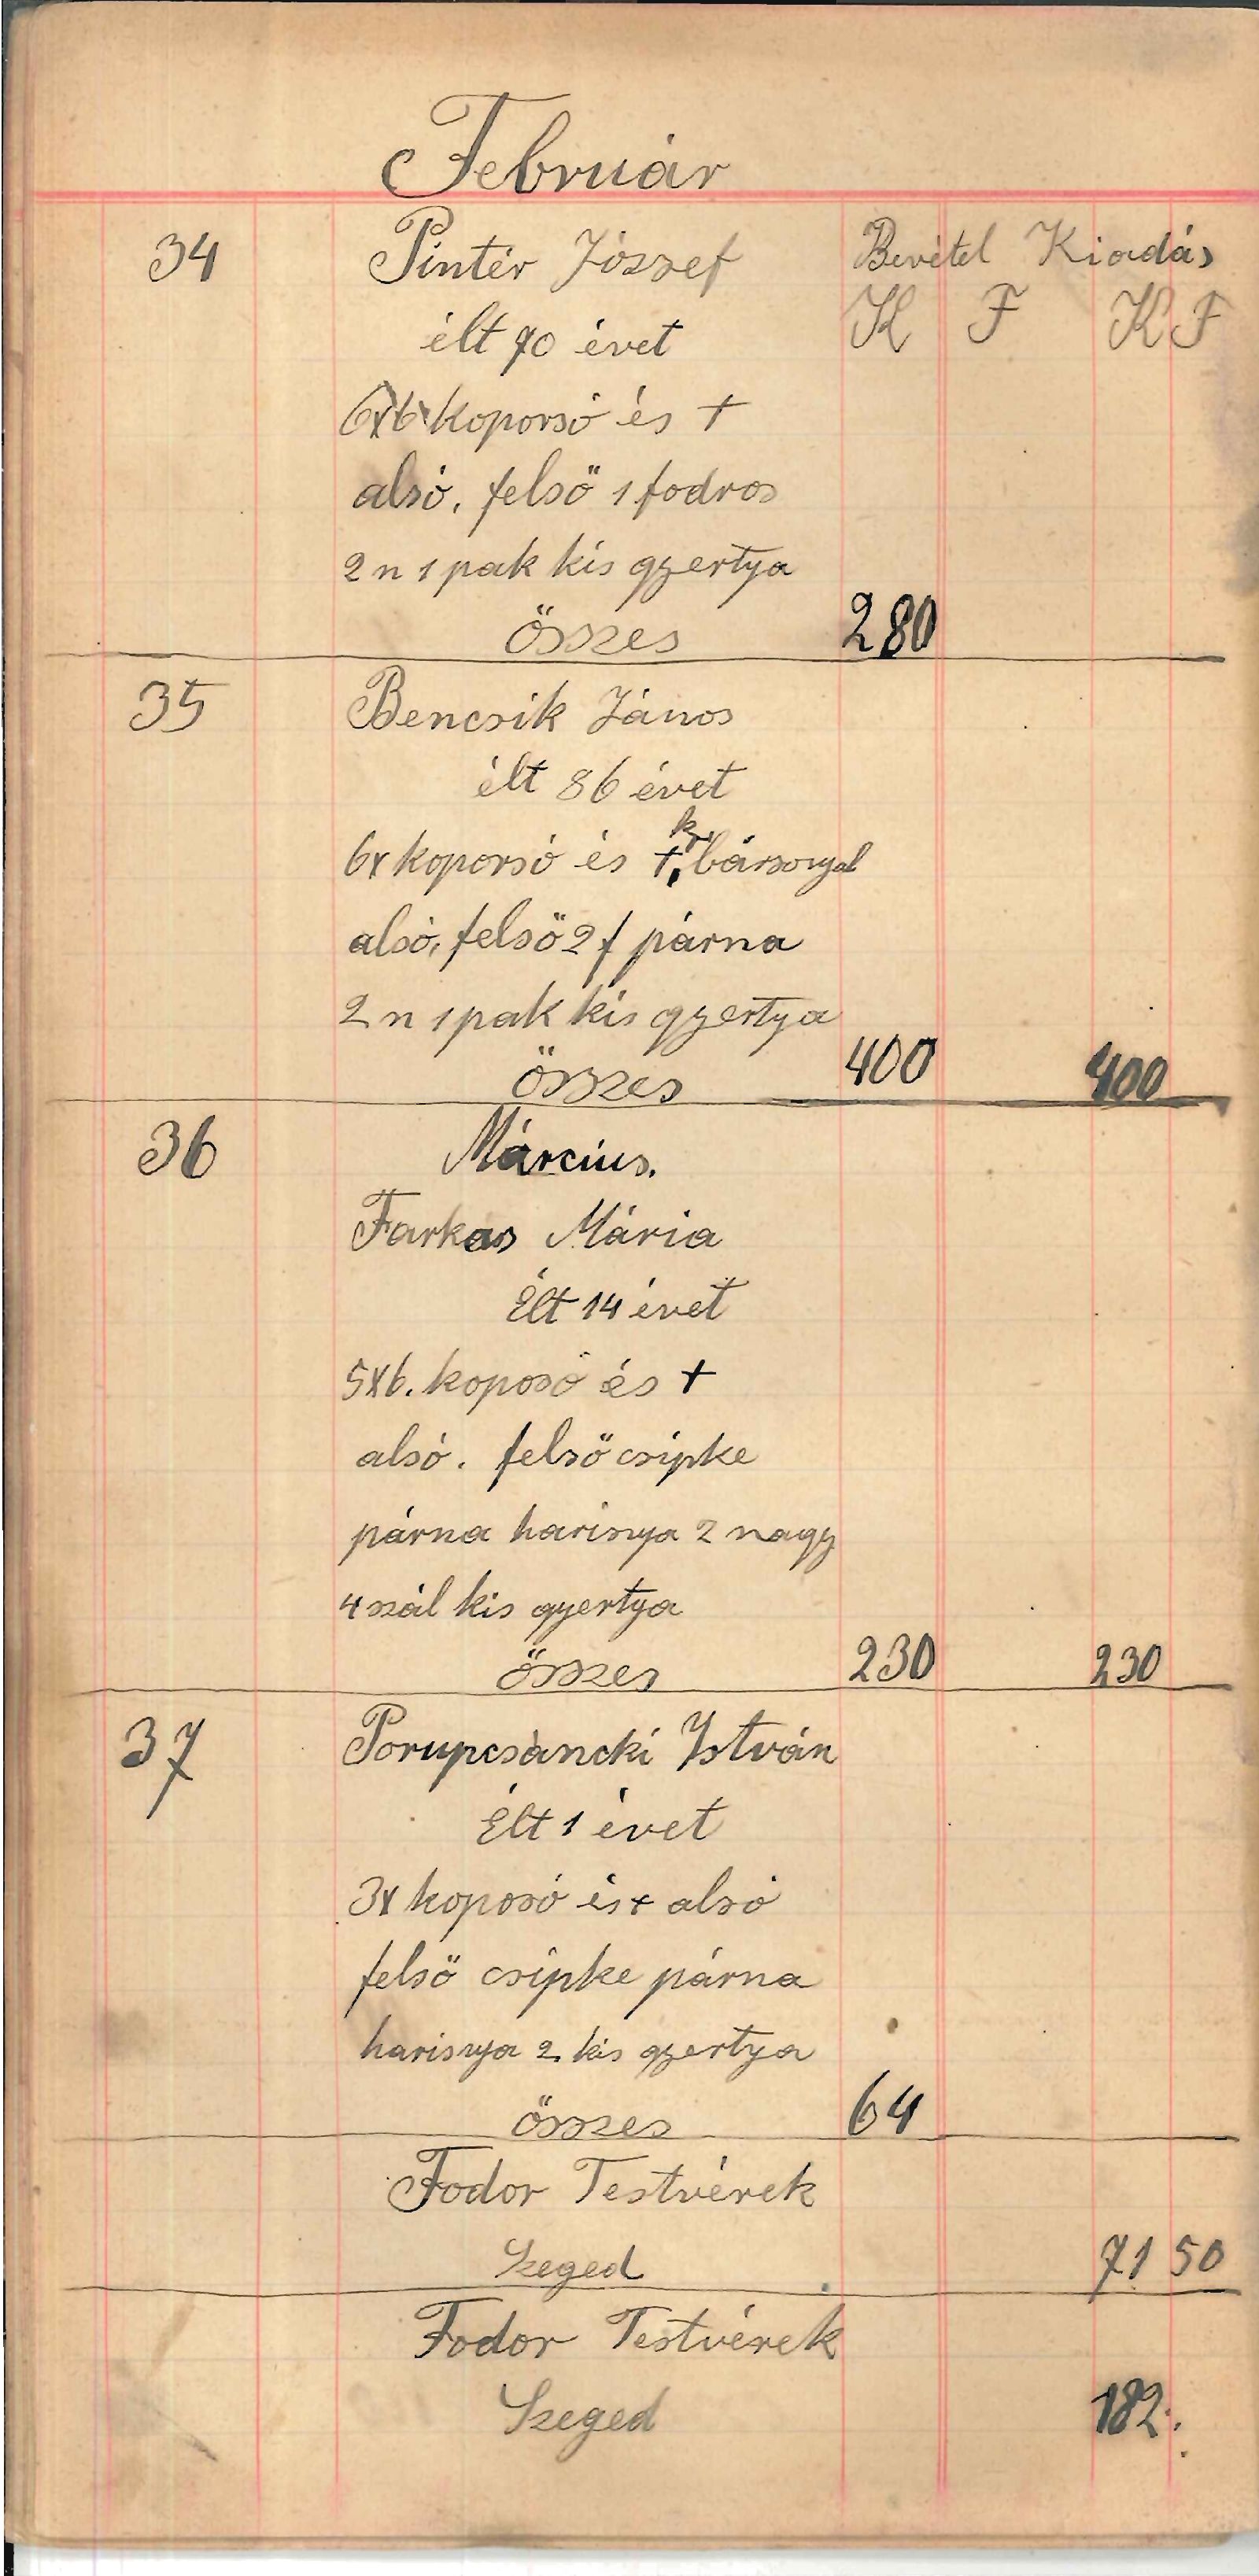 Február
34 Pintér József Bevétel Kiadás
élt 70 évet K F K F
6x6 koporsó és +
alsó, felső 1 fodros
2 n 1 pak kis gyertya
összes 280
35 Bencsik János
élt 86 évet
6x koporsó és +, k. bársonyal
alsó, felső 2 f párna
2 n 1 pak kis gyertya
összes 400 400
36 Március.
Farkas Mária
Élt 14 évet
5x6. koposó és +
alsó. felső csipke
párna harisnya 2 nagy
4 szál kis gyertya
összes 230 230
37 Porupcsáncki István
Élt 1 évet
3x koposó és + alsó
felső csipke párna
harisnya 2 kis gyertya
összes 64
Fodor Testvérek
Szeged 71 50
Fodor Testvérek
Szeged 182.